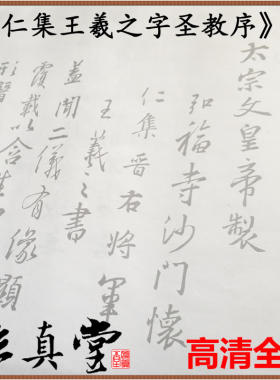 仁集王羲之字圣教序》
太宗文皇帝製
弘福寺沙門懷
仁集晉右將軍
王羲之書
蓋聞二儀有像顯
覆載以含生
真堂
高清全